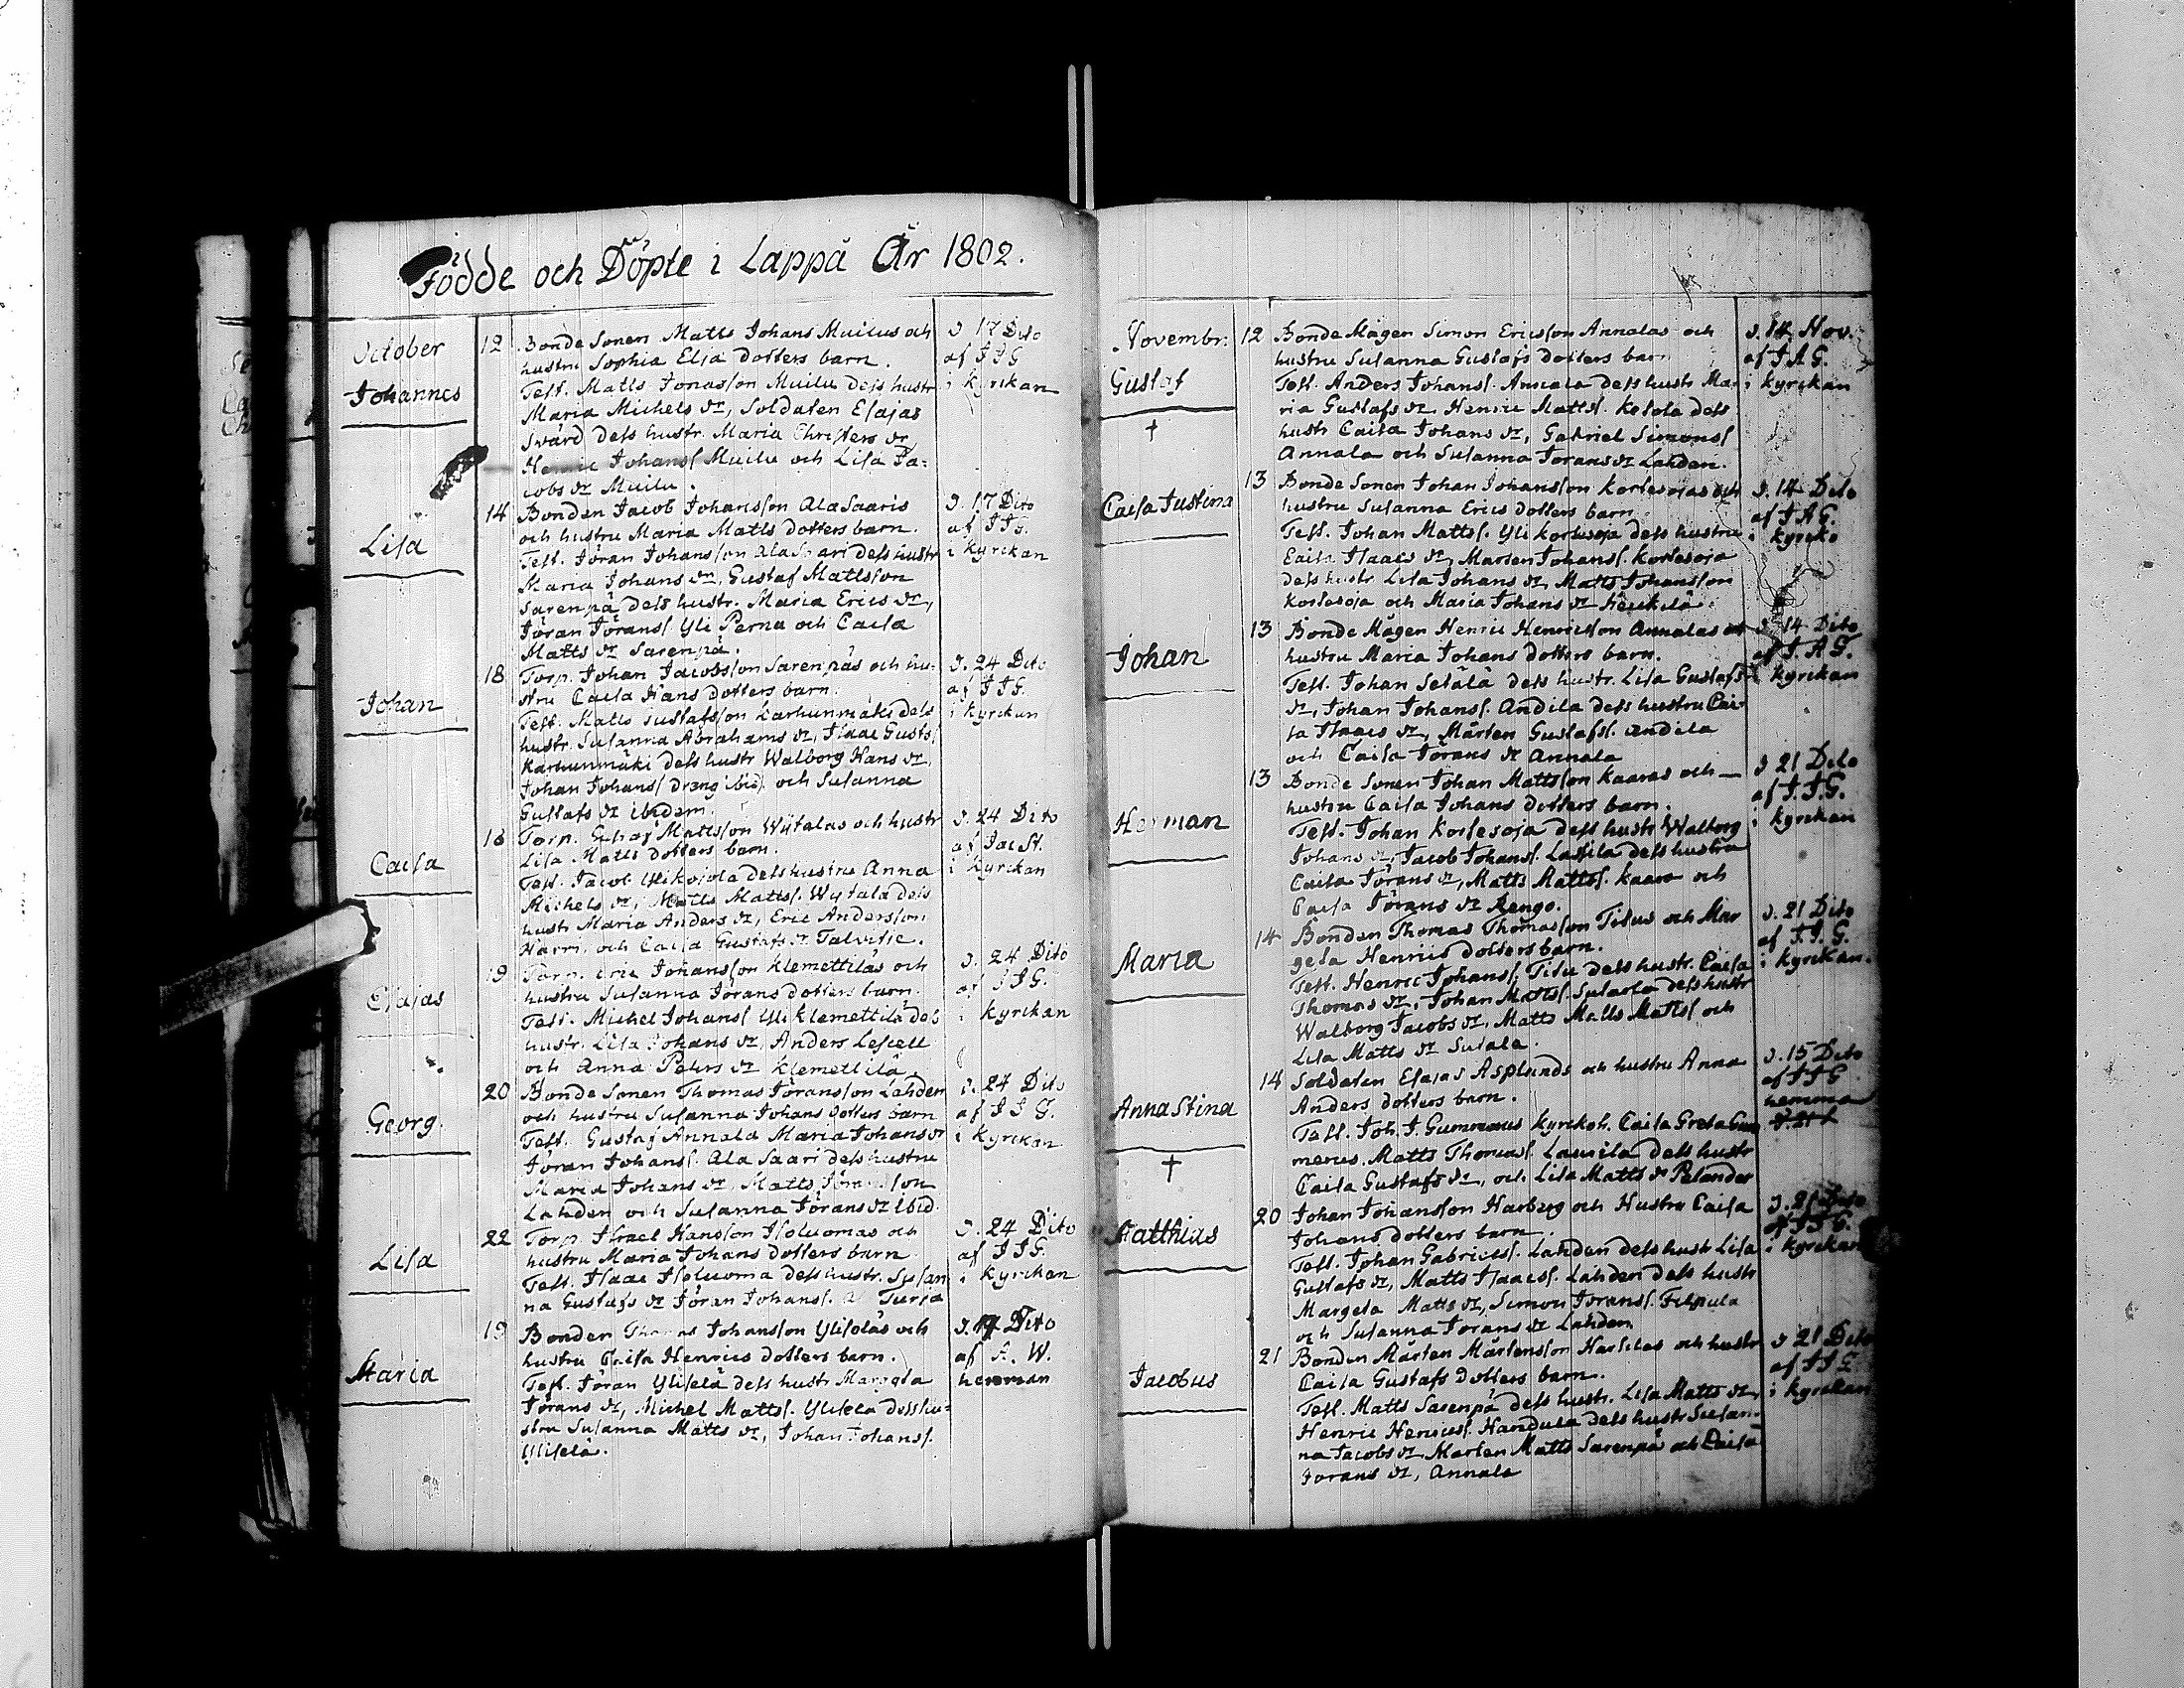 Födde och Döpte i Lappå År 1802.
October
Johannes
12 Bonde Sonen Matts Johans Muilus och
hustru Sophia Elsa dotters barn.
Test. Matts Jonasson Muilu dess hustr
Maria Michels dr, Soldaten Esajas
Swärd dess hustr. Maria Christers dr
Henric Johanss Muilu och Lisa Ja:
cobs dr Muilu.
d 17 Dito
af J J G
i Kyrckan
Lisa
14 Bonden Jacob Johansson Ala Saaris
och hustru Maria Matts dotters barn.
Test. Jöran Johansson Ala Saari dess hustr
Maria Johans dr, Gustaf Mattsson
Sarenpä dess hustr. Maria Erics dr,
Jöran Jöranss Yli Perna och Caisa
Matts dr Sarenpä.
d. 17 Dito
af J J G.
i Kyrckan
Johan
18 Torp. Johan Jacobsson Sarenpäs och hu:
stru Caisa Hans dotters barn.
Test. Matts Gustafsson Karhunmäki dess
hustr. Susanna Abrahams dr, Isaac Gustss
Karhunmäki dess hustr Walborg Hans dr,
Johan Johanss dreng ibid. och Susanna
Gustafs dr ibidem.
d. 24 Dito
af J J G.
i Kyrckan
Caisa
18 Torp. Mattsson Wytalas och hustr
Lisa Matts dotters barn.
Test. Jacob Ylikojola dess hustru Anna
Michels dr, Matts Mattss. Wytala dess
hustr Maria Anders dr, Eric Andersson
Harri, och Caisa Gustafs dr Talvitie.
d. 24 Dito
af Jac St.
i Kyrckan
Esajas
19 Torp. Eric Johansson Klemettiläs och
hustru Susanna Jörans dotters barn.
Test. Michel Johanss Yli Klemettilä des
hustr. Lisa Johans dr, Anders Lescell
och Anna Peters dr Klemettilä.
d. 24 Dito
af J J G.
i Kyrckan
Georg.
20 Bonde Sonen Thomas Göransson Lahden
och hustru Susanna Johans dotters barn
Test. Gustaf Annala Maria Johans dr
Jöran Johanss. Ala Saari dess hustru
Maria Johans dr, Matts Jöransson
Lahden och Susanna Jörans dr ibid.
d. 24 Dito
af J J G.
i Kyrckan
Lisa
22 Torp. Israel Hansson Isoluomas och
hustru Maria Johans dotters barn
Test. Isaac Isoluoma dess hustr. Susan
na Gustafs dr Jöran Johanss. Turja
d. 24 Dito
af J J G.
i Kyrckan
Maria
19 Bonden Thomas Johansson Yliseläs och
hustru Caisa Henrics dotters barn.
Test. Jöran Yliselä dess hustr Margeta
Jörans dr, Michel Mattss. Yliselä dess hu:
stru Susanna Matts dr, Johan Johanss.
Yliselä.
d. 19 Dito
af A. W.
hemman
Novembr:
Gustaf
†
12 Bonde Mågen Simon Ericsson Annalas och
hustru Susanna Gustafs dotters barn
Test. Anders Johanss. Annala dess hustr Ma:
ria Gustafs dr Henric Mattss. Ketola dess
hustr Caisa Johans dr, Gabriel Simonss
Annala och Susanna Jorans dr Lahden.
d. 14 Nov.
af J A G.
i Kyrckan
Caisa Justina
13 Bonde Sonen Johan Johansson Kortesojas och
hustru Susanna Erics dotters barn
Test. Johan Mattss. Yli Kortesoja dess hustru
Caisa Isaacs dr, Marten Johanss. Kortesoja
dess hustr Lisa Johans dr, Matts Johansson
Kortesoja och Maria Johans dr Heickilä.
d. 14 Dito
af J A G.
i Kyrcko
Johan
13 Bonde Mågen Henric Henricsson Annalas och
hustru Maria Johans dotters barn.
Test. Johan Setälä dess hustr. Lisa Gustafs
dr, Johan Johanss. Andila dess hustru Cai
sa Isaacs dr, Mårten Gustafss. Andila
och Caisa Jörans dr Annala
d. 14 Dito
af J. A G.
i Kyrckan
Herman
13 Bonde Sonen Johan Mattsson Kaaras och
hustru Caisa Johans dotters barn.
Test. Johan Kortesoja dess hustr Walborg
Johans dr, Jacob Johanss. Lassila dess hustru
Caisa Jörans dr, Matts Mattss. Kaara och
Caisa Jörans dr Rengo.
d 21 Dito
af J. J G.
i Kyrckan
Maria
14 Bonden Thomas Thomasson Titus och Mar
geta Henrics dotters barn.
Test. Henric Johanss. Titu dess hustr. Caisa
Thomas dr, Johan Mattss. Sulasla dess hustr
Walborg Jacobs dr, Matts Matts Mattss och
Lisa Matts dr Sulala.
d. 21 Dito
af J. J. G.
i Kyrckan.
Anna Stina
†
14 Soldaten Esaias Asplunds och hustru Anna
Anders dotters barn.
Test. Joh. J. Gummerus Kyrckoh. Caisa Greta Gum
merus. Matts Thomass. Laurila dess hustr
Caisa Gustafs dr, och Lisa Matts dr Pelander
d. 15 Dito
af J J G
hemma
Matthias
20 Johan Johansson Harberg och Hustru Caisa
Johans dotters barn.
Test. Johan Gabrielss. Lahden dess hustr Lisa
Gustafs dr, Matts Isaacss. Lahden dess hustr
Margeta Matts dr, Simon Joranss. Filpula
och Susanna Jorans dr Lahden
d. 21 Dito
af J J G.
i Kyrckan
Jacobus
21 Bonden Mårten Mårtensson Harsilas och hustr
Caisa Gustafs dotters barn.
Test. Matts Sarenpä dess hustr. Lisa Matts dr,
Henric Henricss. Handula dess hustr Susan:
na Jacobs dr Marten Matts Sarenpä och Caisa
Jorans dr, Annala
d 21 Dito
af J J G
i Kyrckan